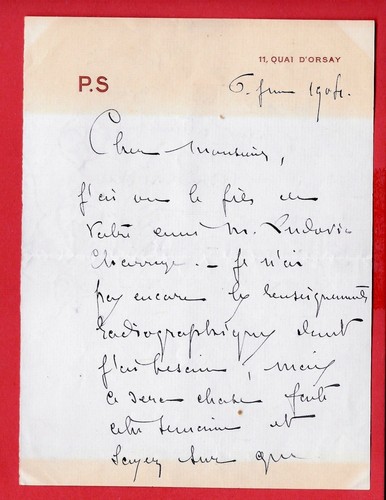 11, QUAI D'ORSAY
P.S
6. 190
Cher Monsieur,
j'ai vu le fils de
votre ami M. Ludovic
. — Je n'ai
pas encore les renseignements
radiographiques dont
j'ai besoin, mais
ce sera chose faite
cette semaine et
soyez sûr que